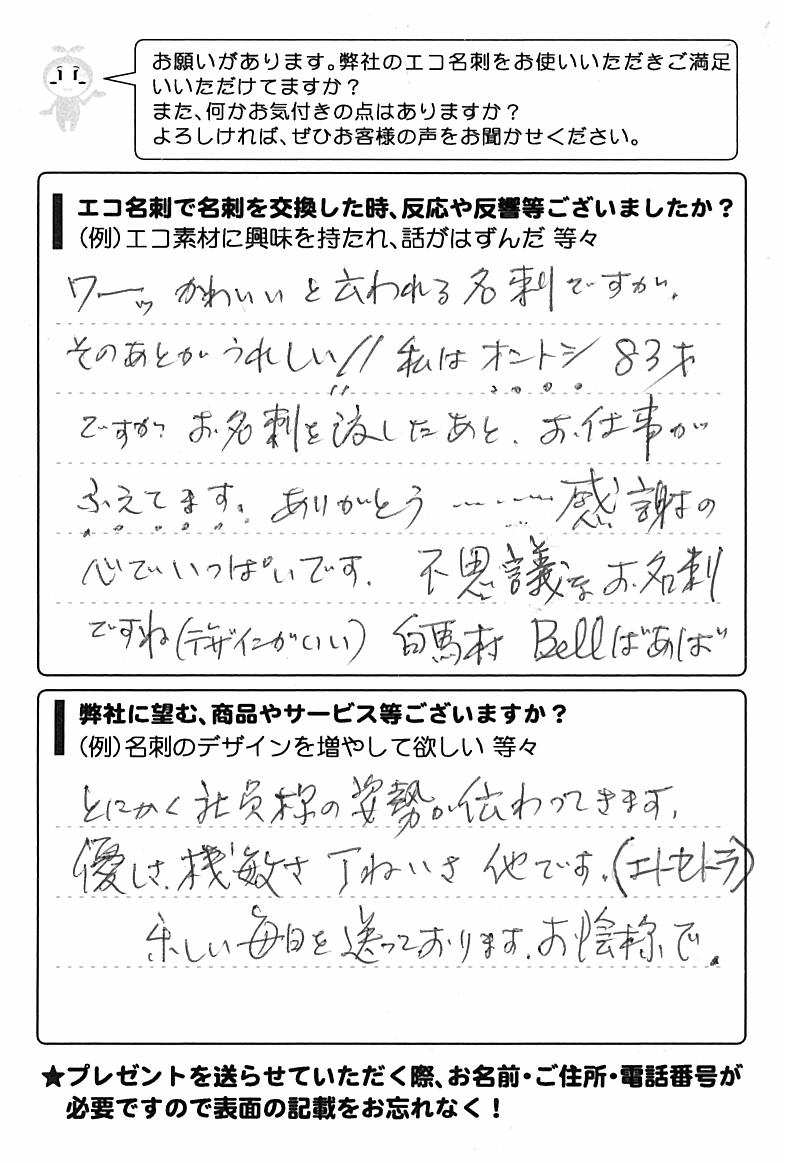 お願いがあります。弊社のエコ名刺をお使いいただきご満足
いいただけてますか？
また、何かお気付きの点はありますか？
よろしければ、ぜひお客様の声をお聞かせください。
エコ名刺で名刺を交換した時、反応や反響等ございましたか？
（例）エコ素材に興味を持たれ、話がはずんだ 等々
ワーッ かわいい と云われる 名刺ですが、
そのあとがうれしい!! 私は オントシ 83才
ですが お名刺を渡したあと、お仕事が
ふえてます。ありがとう ……… 感謝の
心でいっぱいです。 不思議な お名刺
ですね（デザインがいい） 白馬村 Bellばあば
弊社に望む、商品やサービス等ございますか？
（例）名刺のデザインを増やして欲しい 等々
とにかく 社員様の 姿勢が伝わってきます。
優しさ、機敏さ 丁ねいさ 他です。（エトセトラ）
楽しい 毎日を 送っております。お陰様で。
★プレゼントを送らせていただく際、お名前・ご住所・電話番号が
必要ですので表面の記載をお忘れなく！